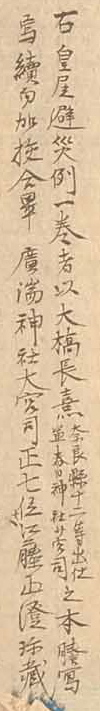 右皇居避災例一卷者以大橋長憙奈良縣十二等出仕並春日神社少宮司之本謄寫
焉續而加挍合畢 廣瀬神社大宮司正七位江藤正澄珎藏